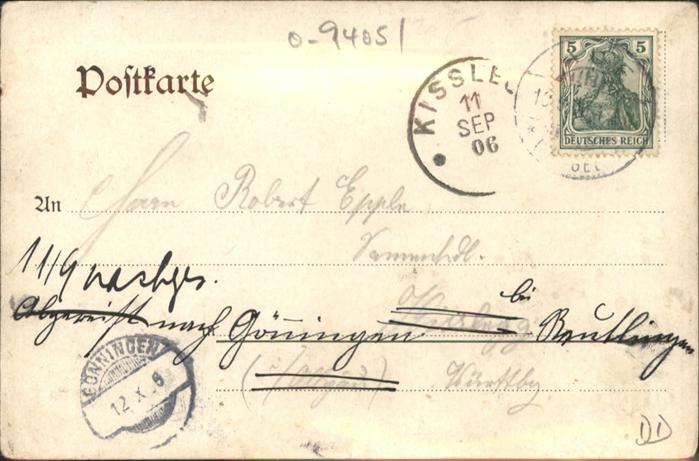 0-94051
Postkarte
5 5
DEUTSCHES REICH
KISSLE
11
SEP
06
An Herrn Robert Epple
Samenhdl.
11/9 nachges.
bei
Abgereist nach Gönningen Reutlingen
(Allgäu) Württbg
GÖNNINGEN
12 X 6
DD